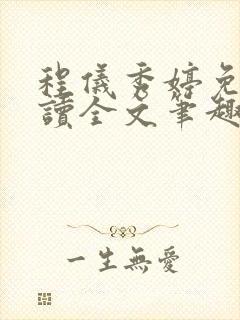 程儀秀婷免
讀全文筆趣
一生無愛